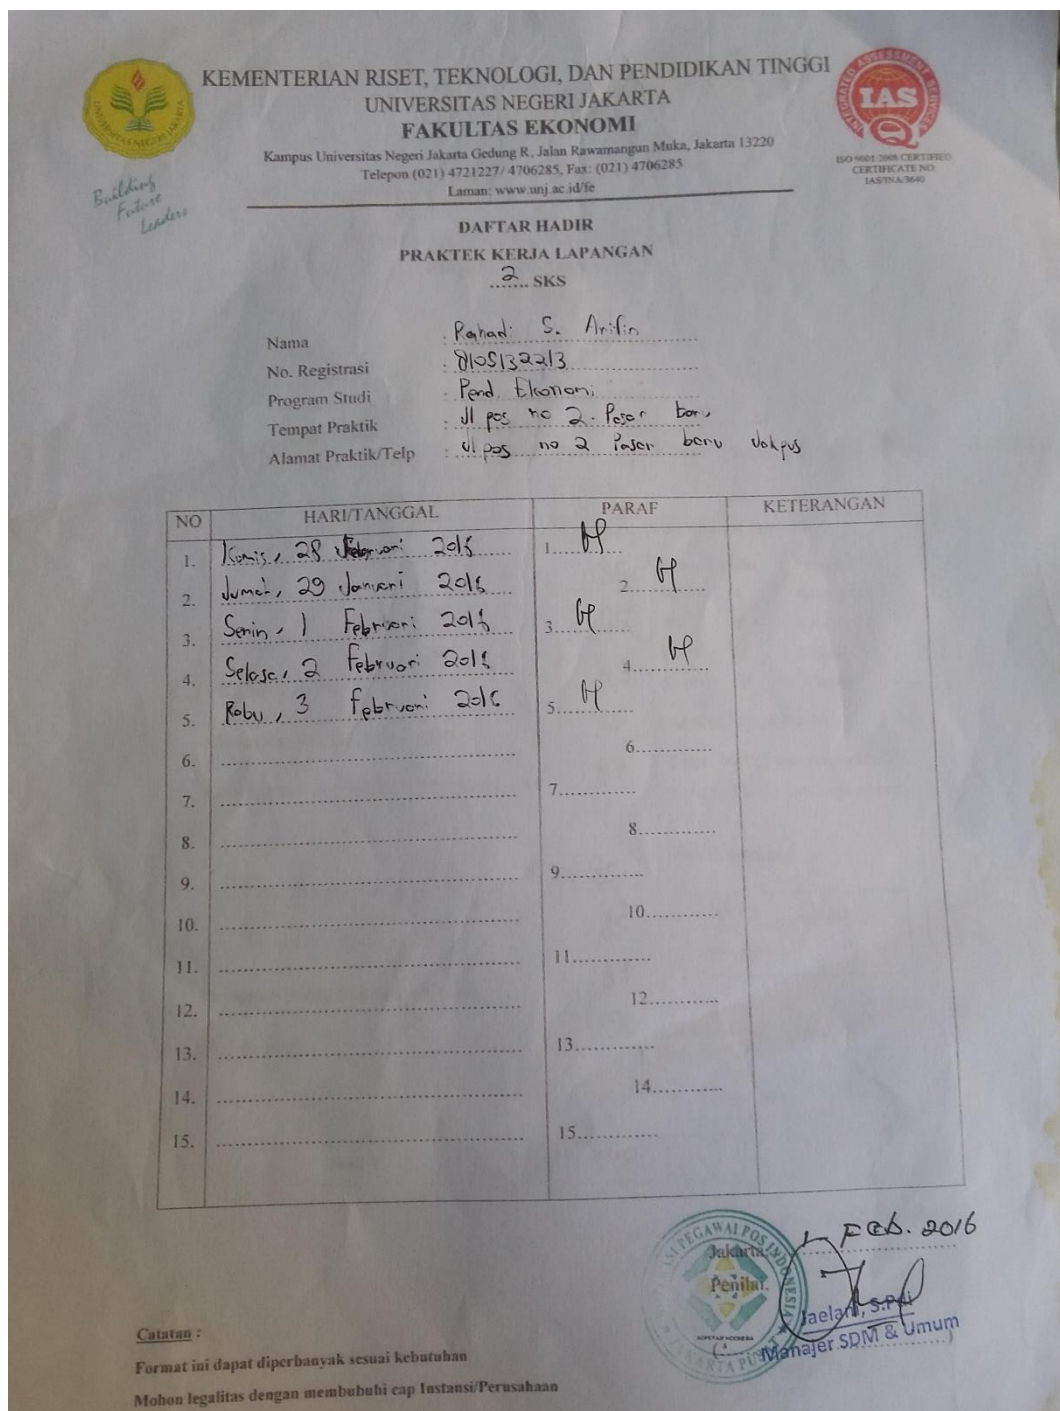 KEMENTERIAN RISET, TEKNOLOGI, DAN PENDIDIKAN TINGGI
UNIVERSITAS NEGERI JAKARTA
FAKULTAS EKONOMI
Kampus Universitas Negeri Jakarta Gedung R, Jalan Rawamangun Muka, Jakarta 13220
Telepon (021) 4721227/ 4706285, Fax: (021) 4706285
Laman: www.unj.ac.id/fe
UNIVERSITAS NEGERI JAKARTA
Building
Future
Leaders
INTEGRATED ASSESSMENT SERVICES
IAS
ISO 9001:2008 CERTIFIED
CERTIFICATE NO.
IAS/INA/3640
DAFTAR HADIR
PRAKTEK KERJA LAPANGAN
2 SKS
Nama : S. Arifin
No. Registrasi : 8105132213
Program Studi : Pend. Ekonomi
Tempat Praktik : Jl pos no 2. Pasar baru
Alamat Praktik/Telp : Jl pos no 2 Pasar baru Jakpus
NO HARI/TANGGAL PARAF KETERANGAN
1. Kamis, 28 2016 1.
2. Jumat, 29 Januari 2016 2.
3. Senin, 1 Februari 2016 3.
4. Selasa, 2 Februari 2016 4.
5. Rabu, 3 Februari 2016 5.
6. 6.
7. 7.
8. 8.
9. 9.
10. 10.
11. 11.
12. 12.
13. 13.
14. 14.
15. 15.
Jakarta, Feb. 2016
Penilai,
PEGAWAI POS INDONESIA
JAKARTA PUSAT
Jaelani, S.Psi
Manajer SDM & Umum
Catatan :
Format ini dapat diperbanyak sesuai kebutuhan
Mohon legalitas dengan membubuhi cap Instansi/Perusahaan